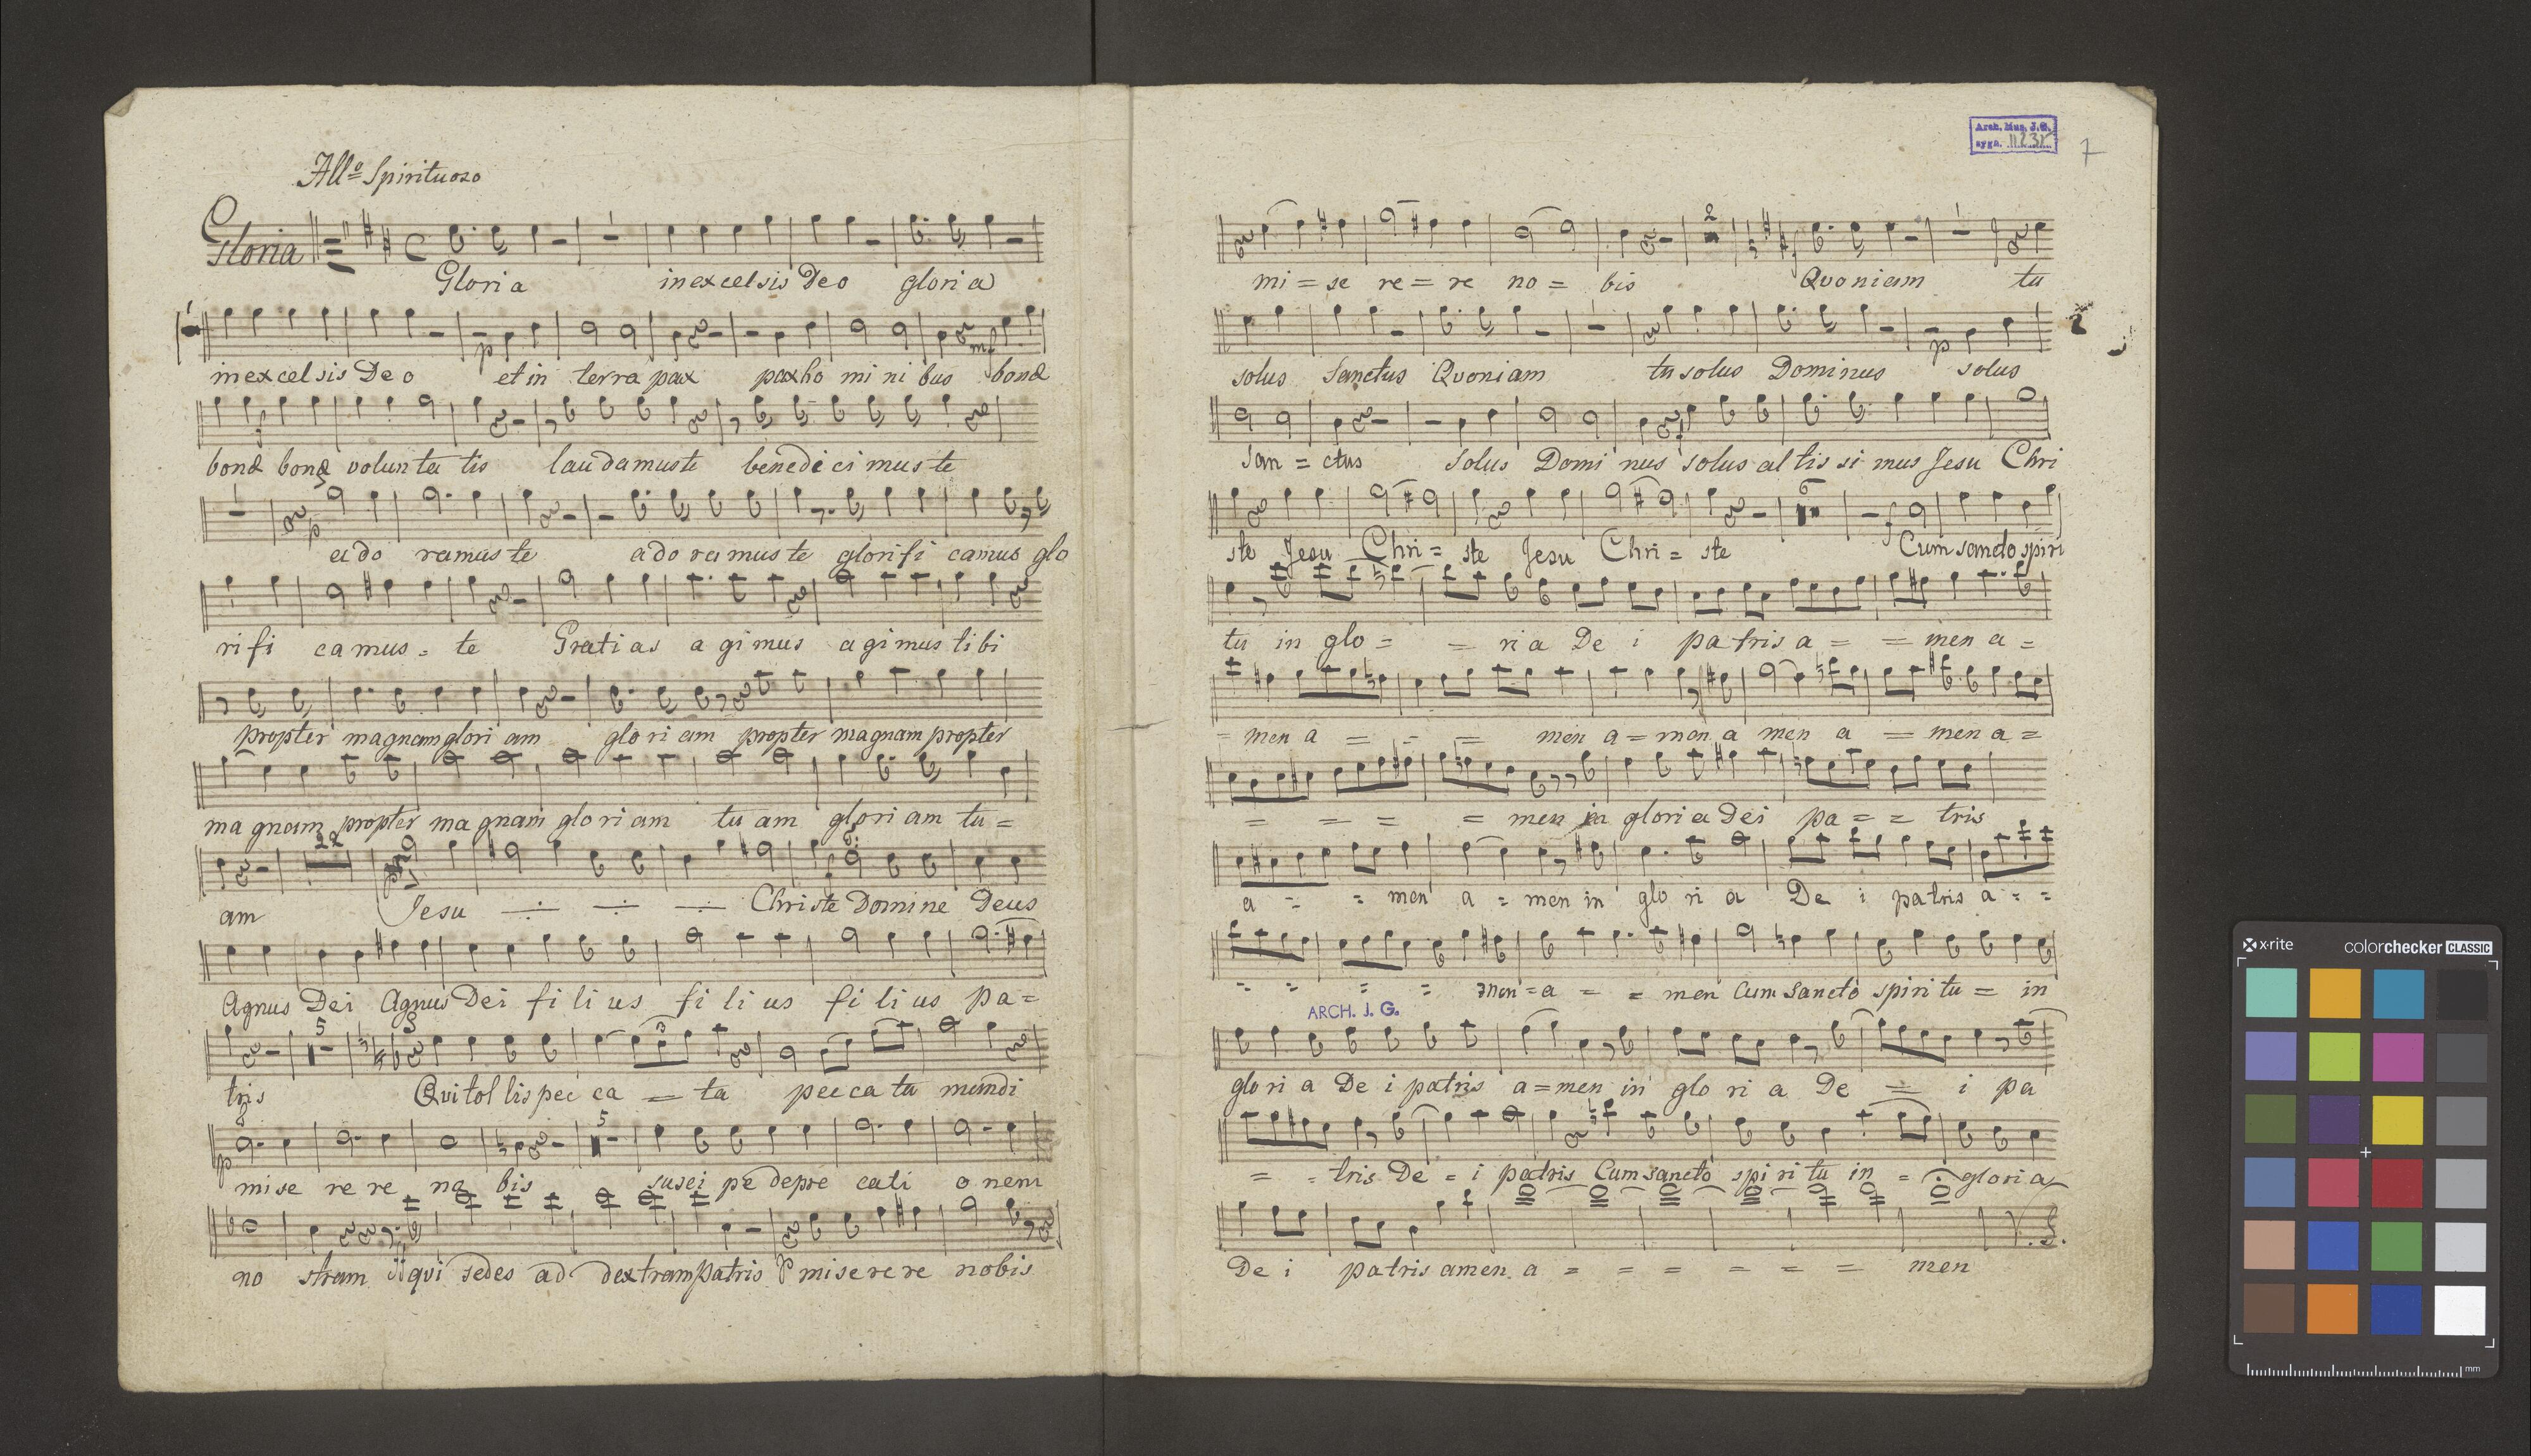 Allo Spirituoso
Gloria
Gloria in excelsis Deo gloria
in excelsis Deo et in terra pax pax ho mi ni bus bonæ
bonæ bonæ volun ta tis laudamus te benedi ci mus te
ado ramus te ado ramus te glorifi camus glo
ri fi ca mus = te Grati as a gi mus a gi mus ti bi
propter magnam glori am glo ri am propter magnam propter
ma gnam propter ma gnam glo ri am tu am glori am tu =
22
am Jesu Christe Domine Deus
Agnus Dei Agnus Dei fi li us fi li us fi li us pa =
5 3
tris Qui tol lis pec ca = ta pec ca ta mundi
p 5
mise re re no bis susci pe depre cati o nem
no stram qui sedes ad dextram Patris mise re re nobis
Arch. Mus. J.G.
sygn.
7
2
mi = se re = re no = bis Quoniam tu
solus Sanctus Quoniam tu solus Dominus solus
San = ctus Solus Domi nus solus al tis si mus Jesu Chri
6
ste Jesu Chri = ste Jesu Chri = ste Cum sancto spiri
tu in glo = = ri a De i pa tris a = = men a =
= men a = = = men a = men a men a = men a =
= = = = men in glori a Dei pa = = tris
a = = men a = men in glo ri a De i patris a = =
= = = = men = a = = men Cum Sancto spiri tu = in
ARCH. J. G.
glo ri a De i patris a = men in glo ri a De = i pa
= = tris De = i patris Cum sancto spi ri tu in = gloria
V. S.
De i patris amen a = = = = = = men
x·rite colorchecker CLASSIC
mm